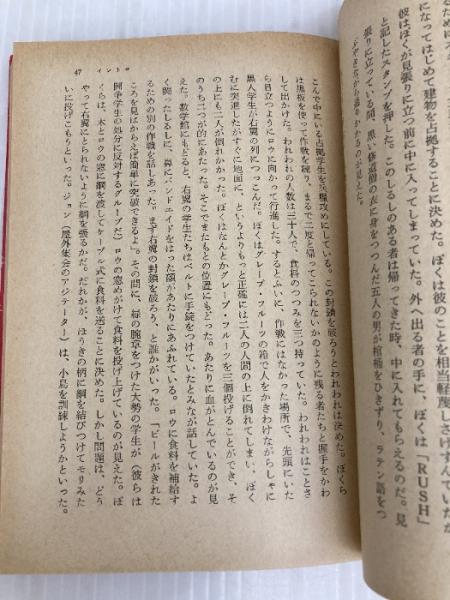 になってはじめて建物を占拠することに決めた。ぼくは彼のことを相当軽蔑しさげすんでいたが
彼はぼくが見張りに立つ前に中に入ってしまっていた。外へ出る者の手に、ぼくは「RUSH」
と記したスタンプを押した。このしるしのある者は帰ってきた時、中に入れてもらえるのだ。見
張りに立っている間、黒い修道僧の衣に身をつつんだ五人の男が棺桶をひきずり、ラテン語をつ
ぶやきながら通りかかるのが見えた。
こんで中にいる占拠学生を兵糧攻めにしている。この封鎖を破ろうとわれわれは決めた。ぼくら
は黒板を使って作戦を練り、まるで二度と帰ってこられないかのように残る者たちと握手をかわ
して出かけた。われわれの人数は三十人で、食料のつつみを三つ持っていた。われわれはことさ
ら目立つようにロウに向かって行進した。するとふいに、作戦にはなかった場所で、先頭にいた
黒人学生が右翼の列につっこんだ。ぼくはグレープ・フルーツの箱で人をかきわけながらしゃに
むに突進したがすぐに地面に、というよりもっと正確には二人の人間の上に倒れてしまい、ぼく
の上にも二人が倒れかかった。ぼくはなんとかグレープ・フルーツを三個投げることができ、そ
のうち二つが的にあたった。そこでまたもとの位置にもどった。あたりに血がとんでいるのが見
えた。数学館にもどると、右翼の学生たちはベルトに手錠をつけていたとみなが話していた。よ
く闘ったしるしに、鼻にバンドエイドをはった顔があたりにあふれている。ロウに食料を補給す
るための別の作戦を話しあった。まず右翼の封鎖を破ろう、と誰かがいった。「ビールがきれた
ころを見はからえば簡単に突破できるよ」。その間に、緑の腕章をつけた大勢の学生が（彼らは
闘争学生の処分に反対するグループだ）ロウの窓めがけて食料を投げ上げているのが見えた。ぼ
くらは、木とロウの窓に綱を渡してケーブル式に食料を送ることに決めた。しかし問題は、どう
やって右翼にとられないように綱を張るかだ。だれかが、ほうきの柄に綱を結びつけてモリみた
いに投げこもうといった。ジョン（屋外集会のアジテーター）は、小鳥を訓練しようかといった。
47 イントロ